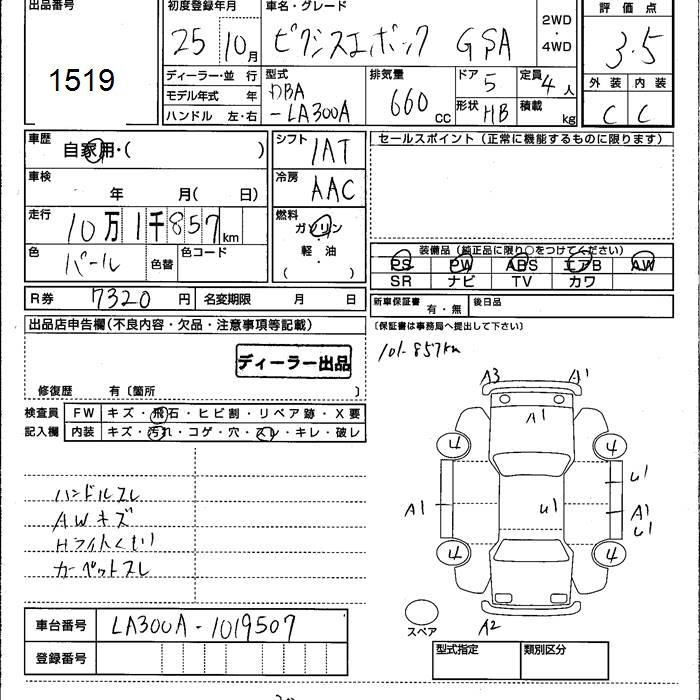 出品番号
1519
初度登録年月
25 10月
車名・グレード
ピクシスエポック GSA
2WD
・
4WD
評価点
3.5
ディーラー・並 行
モデル年式 年
ハンドル 左・右
型式
DBA
-LA300A
排気量
660 CC
ドア 5
形状 HB
定員 4人
積載 kg
外装 内装
C C
車歴
自家用・( )
シフト
IAT
セールスポイント(正常に機能するものに限ります)
車検
年 月( 日)
冷房
AAC
走行
10万1千857km
燃料
ガソリン
・
軽・油
( )
色
パール
色替
色コード
装備品(純正品に限り○をつけてください)
PS PW ABS エアB AW
SR ナビ TV カワ
R券 7320円 名変期限 月 日
新車保証書 有・無 後日品
出品店申告欄(不良内容・欠品・注意事項等記載)
(保証書は事務局へ提出して下さい)
101-857km
ディーラー出品
修復歴 有〔箇所 〕
検査員
記入欄
FW キズ・飛石・ヒビ割・リペア跡・X要
内装 キズ・汚れ・コゲ・穴・スレ・キレ・破レ
A3 A1
A1
4 4
U1
A1 U1 A1
U1
4 4
A2
スペア
ハンドルスレ
AWキズ
Hライトくもり
カーペットスレ
車台番号 LA300A-1019507
登録番号
型式指定 類別区分